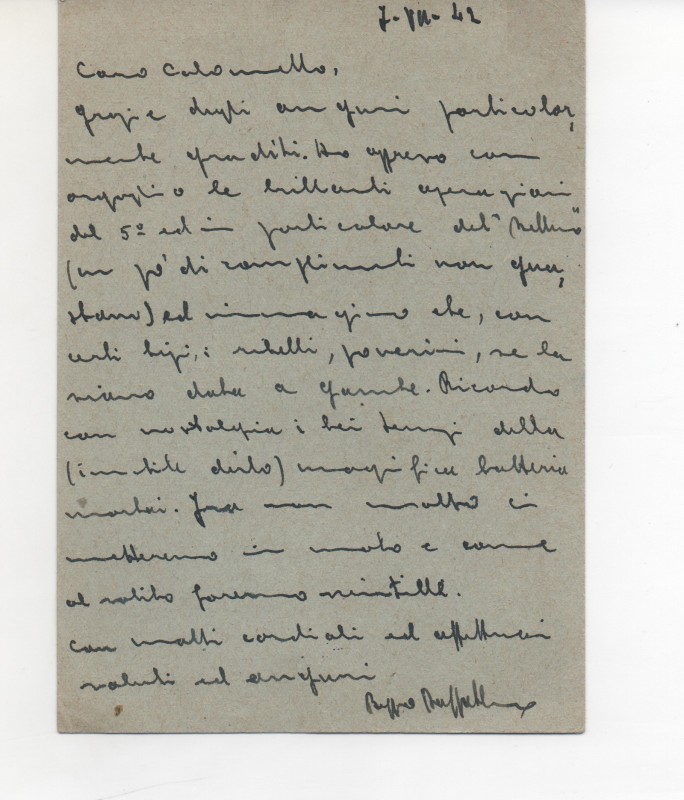 7-VII-42
Caro Colonnello,
Grazie degli auguri particolar,
mente graditi. Ho appreso con
orgoglio le brillanti operazioni
del 5º ed in particolare del
(un pò di complimenti non gua,
stano) ed immagino che, con
certi tipi, i ribelli, poverini, se la
siano data a gambe. Ricordo
con nostalgia i bei tempi della
(inutile dirlo) magnifica batteria
mortai. Fra non molto ci
metteremo in moto e come
al solito faremo scintille.
Con molti cordiali ed affettuosi
saluti ed auguri
Beppo